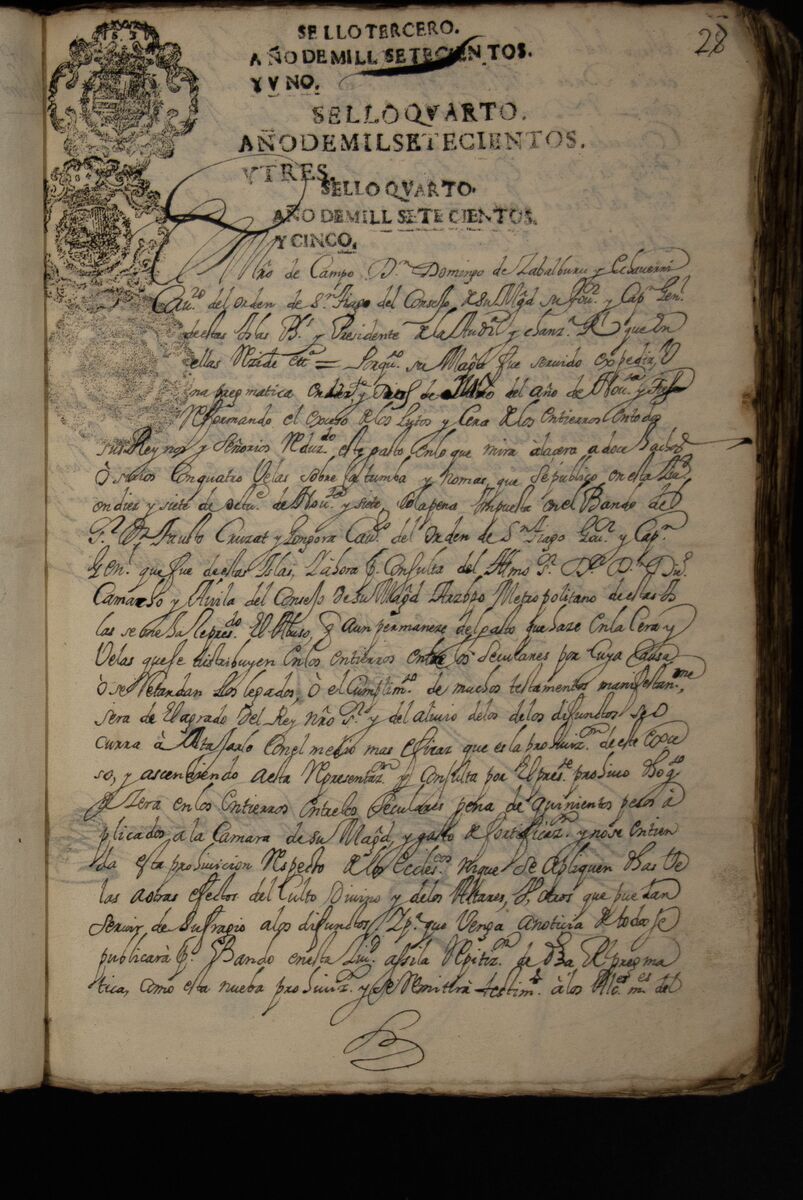 28
SELLO TERCERO.
AÑO DE MILL SETECIENTOS.
Y VNO.
SELLO QVARTO.
AÑO DE MIL SETECIENTOS.
Y TRES.
SELLO QVARTO.
AÑO DE MILL SETECIENTOS.
Y CINCO.
Mro de Campo Dn Domingo de Zabalburu y Echaverri
Cauro del orden de Sn tiago del Consejo de Su Magd su Gouor y Capn Genl
destas Islas Ps y Presidente de la Audia y chanza Rl que en
ellas Reside etca = Porquo su Magd fue seruido expedir V
na pregmatica en y tres de del año de Nouta y
Reformando el exceso de los Lutos y Cera de los entierros en todos
sus Reynos y Señorios Reduzdo este gasto en lo que mira a la cera a doce hachas
ò sirios con quatro Velas sobre la tumba y no mas, que se publicò en esta Ciud
en diez y siete de octue de Nouta y siete, la pena impuesta en el Bando del
Sr Dn Fausto Cruzat y Gongora Cauo del orden de Sn tiago Gour y Capn
Genl que fue destas Islas, Y ahora pr Consulta del Illmo Sr Dn Diego
Camacho y Auila del Consejo de su Magd Arzobpo Metropolitano de estas Is
las se me ha represdo El Abuso, q aun permaneze del gasto que haze en la Cera y
Velas que se distribuyen en los entierros entre los Seculares por cuya Causa
ò se Retardan los legados, ò el Cumplimto de muchos testamentos manifestanme
sera de El agrado del Rey Nro Sr y del aliuio de los de los difuntos se o
curra à Atajarlo con el medio mas eficaz que es la prohiuizn de este exce
so, y ascendiendo a esta Representazn y Consulta por El preste prohiuo
Zera en los Entierros entre los Seculares pena de quinientos pesos a
plicados a la Camara de su Magd, y gasto de fortificazn y no se entien
da esta prohiuicion Respecto de los Eccles.cos ni que se apliquen dhas Ve
las a otros efectos del Culto Diuino y de los Altares, y otros que puedan
Seruir de Sufragio a los difuntos, Y pa que Venga a noticia de todos se
publicarà pr Bando en esta Ciud assi la Repitizn de dha Rl pregma
tica, como esta nueba prohiuizn y se Remitirà testimo à los Alces mes del